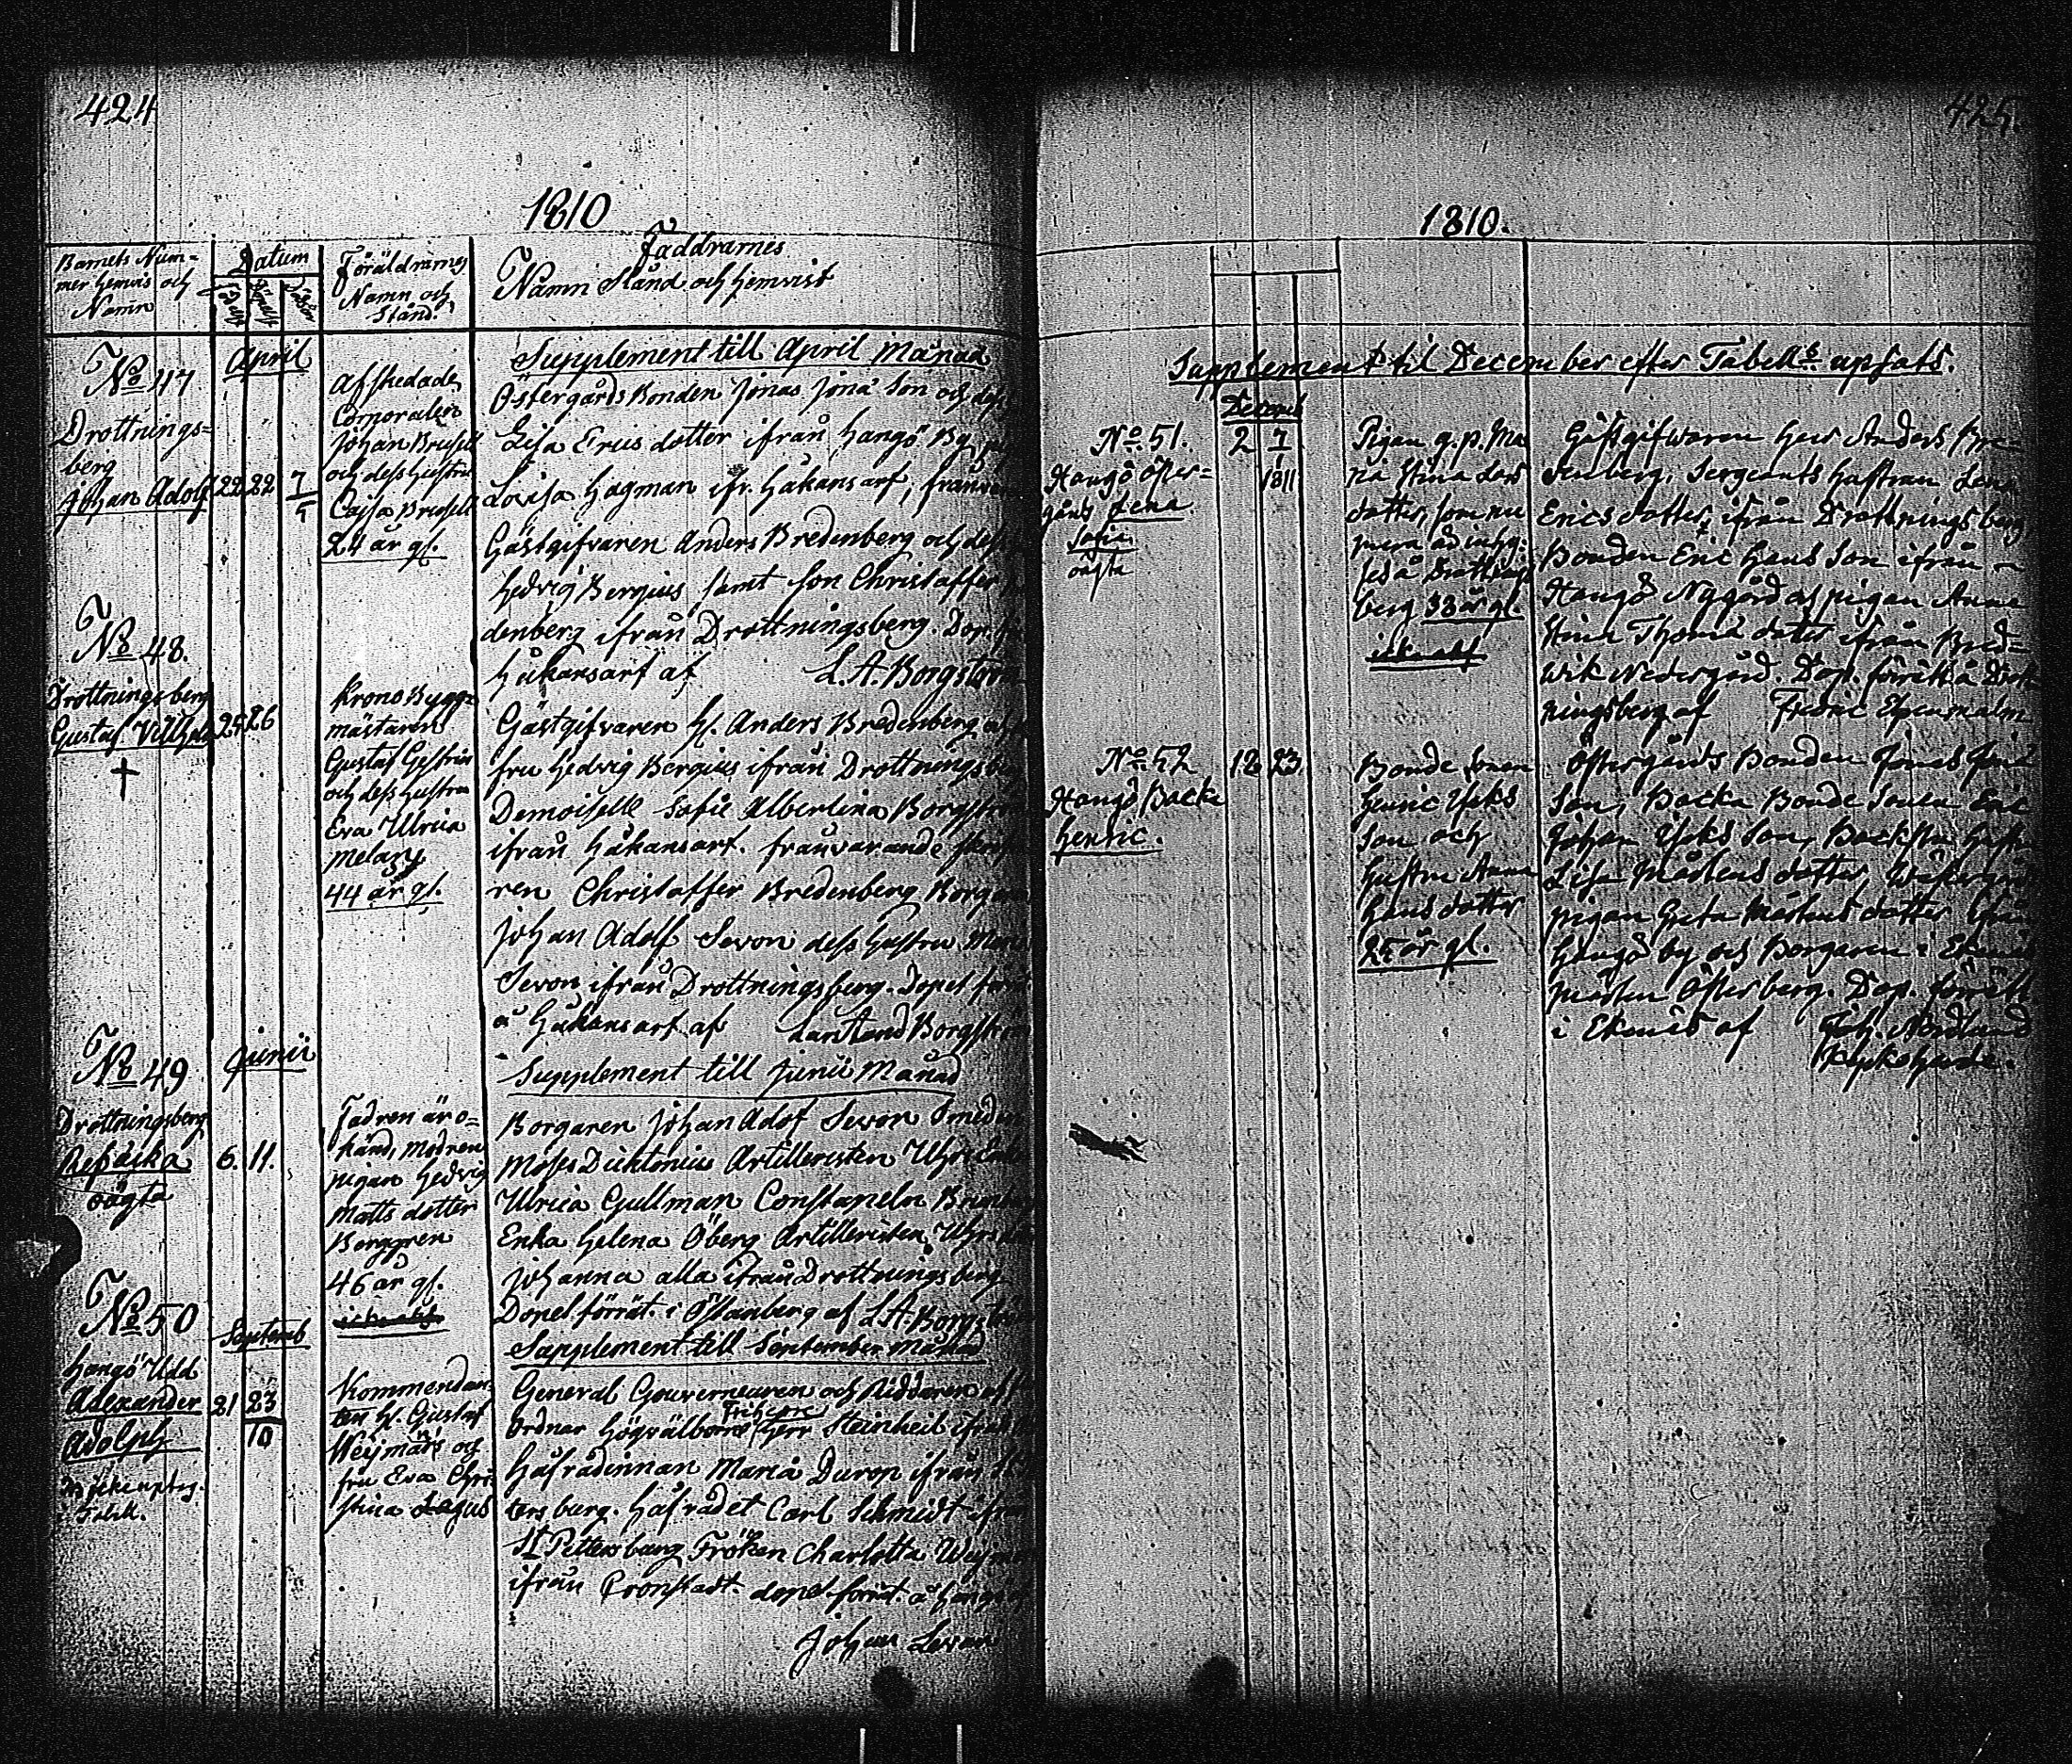 424
1810
Barnets Num-
mer hemvis och
Namn
Datum
Föräldrarnes
Namn och
Stånd.
Faddrarnes
Namn Stånd och hemvist
Supplement till April Månad
April
No 47
Drottnings-
berg
Johan Adolf
22 22 7
Afskedade
Corporalen
Johan Brusell
och dess hustru
Cajsa Brusell
24 år gl.
Östergårds Bonden Jonas Jona Son och dess
Lisa Erics dotter ifrån Hangö By,
Lovisa Hagman ifr. Håkansarf, frånva
Gästgifvaren Anders Bredenberg och dess
Hedvig Bergius samt son Christaffer
denberg ifrån Drottningsberg. Dop.
Håkansarf af L. A. Borgström
No 48.
Drottningsberg
Gustaf Villhelm
25 26
Krono Bygg-
mästaren
Gustaf Gestrin
och dess hustru
Eva Ulrica
Melazy
44 år gl.
Gästgifvaren H. Anders Bredenberg
fru Hedvig Bergius ifrån Drottningsbe
Demoiselle Sofie Albertina Borgstr
ifrån Håkansarf. frånvarande
ren Christaffer Bredenberg Borgare
Johan Adolf Sevon dess hustru
Sevon ifrån Drottningsberg. Dopet förr
å Håkansarf af Borgström
Supplement till Junii Månad
Junii
No 49
Drottningsberg
Rebecka
oägta
6. 11.
Fadren är o-
känd, Modren
pigan Hedvig
Matts dotter
Berggren
46 år gl.
Borgaren Johan Adof Sevon Smeden
Moses Dicktonius Artilleristen
Ulrica Gullman Constapeln
Enka Helena Öberg Artilleristen
Johanna alla ifrån Drottningsberg
Dopet förrät. i af L. A. Borgström
Supplement till September Månad
Septemb
No 50
Hangö Udd
Alexander
Adolph
21 23
10
Kommendan-
ten H. Gustaf
Weymarn och
fru Eva Chri
stina
General Gouverneuren och Riddaren af
Ordnar Högvälborne Herr Steinheil ifrån
Håfrådinnan Maria Durop ifrån St
tersburg. Håfrådet Carl Schmidt ifrån
St Pettersburg Fröken Charlotta Weymarn
ifrån Cronstadt. dopet förrät. å Hangö
Johan Sevon
425.
1810.
Supplement til December efter Tabells upsats.
Decemb
No. 51.
Hangö Öster-
gårds Lena
Sofia
oägta
2 7
1
1811
Pigan g. p. Ma
ria Stina Lars
dotter, som nu
mera är inhy-
ses å Drottnings
berg 38 år gl.
Gästgifwaren Herr Anders Bre-
denberg, Sergeants hustrun Lena
Erics dotter, ifrån Drottningsberg
Bonden Eric Hans Son ifrån
Hangö Nygård och pigan Anna
Stina Thomas dotter ifrån Bred-
wik Nedergård. Dop. förrätt. å Drott
ningsberg af Fredric
No. 52
Hangö Backa
Henric.
12 23.
Bonde Sonen
Henric Isaks
Son och
Hustru Anna
Hans dotter
25 år gl.
Östergårds Bonden Jonas Jona
Son, Backa Bonde Sonen Eric
Johan Isaks Son, Hustru
Lisa Mårtens dotter,
pigan Greta Mårtens dotter ifrån
Hangö by och Borgaren i Ekenäs
Mårten Österberg. Dop. förrätt
i Ekenäs af Nordlund
Kyrkoherde.